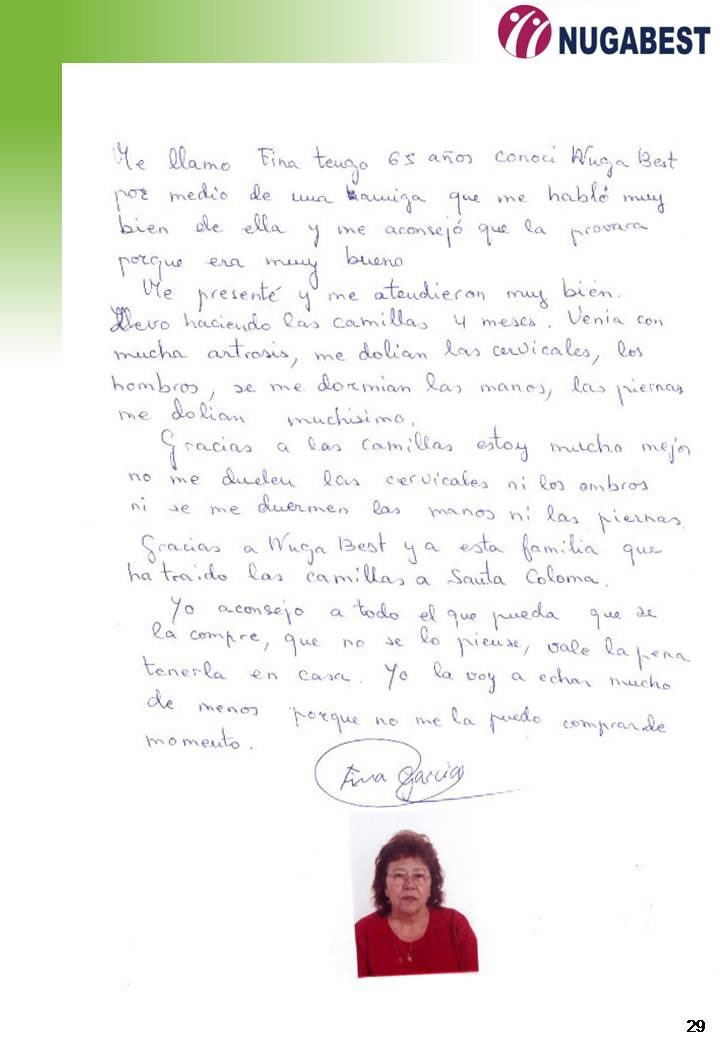 NUGABEST
Me llamo Fina tengo 65 años conoci Nuga Best
por medio de una amiga que me habló muy
bien de ella y me aconsejó que la provara
porque era muuy bueno
Me presenté y me atendieron muy bien.
Llevo haciendo las camillas 4 meses. Venia con
mucha artrosis, me dolian las cervicales, los
hombros, se me dormian las manos, las piernas
me dolian muchisimo.
Gracias a las camillas estoy mucho mejor
no me duelen las cervicales ni los ombros
ni se me duermen las manos ni las piernas.
Gracias a Nuga Best y a esta familia que
ha traido las camillas a Santa Coloma.
Yo aconsejo a todo el que pueda que se
la compre, que no se lo piense, vale la pena
tenerla en casa. Yo la voy a echar mucho
de menos porque no me la puedo comprar de
momento.
Fina Garcia
29